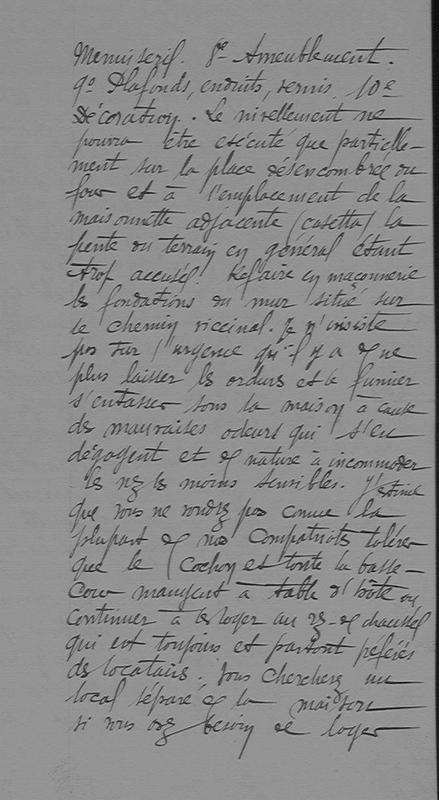 Menuiserie. 8º Ameublement.
9º Plafonds, enduits, vernis. 10º
Décoration. Le nivellement ne
pourra être exécuté que partielle-
ment sur la place désencombrée du
four et à l'emplacement de la
maisonnette adjacente (casetta) la
pente du terrain en général étant
trop accusée. Refaire en maçonnerie
les fondations du mur situé sur
le chemin vicinal. Je n'insiste
pas sur l'urgence qu'il y a de ne
plus laisser les ordures et le fumier
s'entasser sous la maison à cause
des mauvaises odeurs qui s'en
dégagent et de nature à incommoder
les nez les moins sensibles. J'estime
que vous ne voudrez pas comme la
plupart de nos compatriotes tolérer
que le (cochon et toute la basse-
cour mangent à table d'hôte ou
continuer à les loger au rez-de chaussée
qui est toujours et partout préféré
des locataires. Vous chercherez un
local séparé de la maison
si vous avez besoin de loger